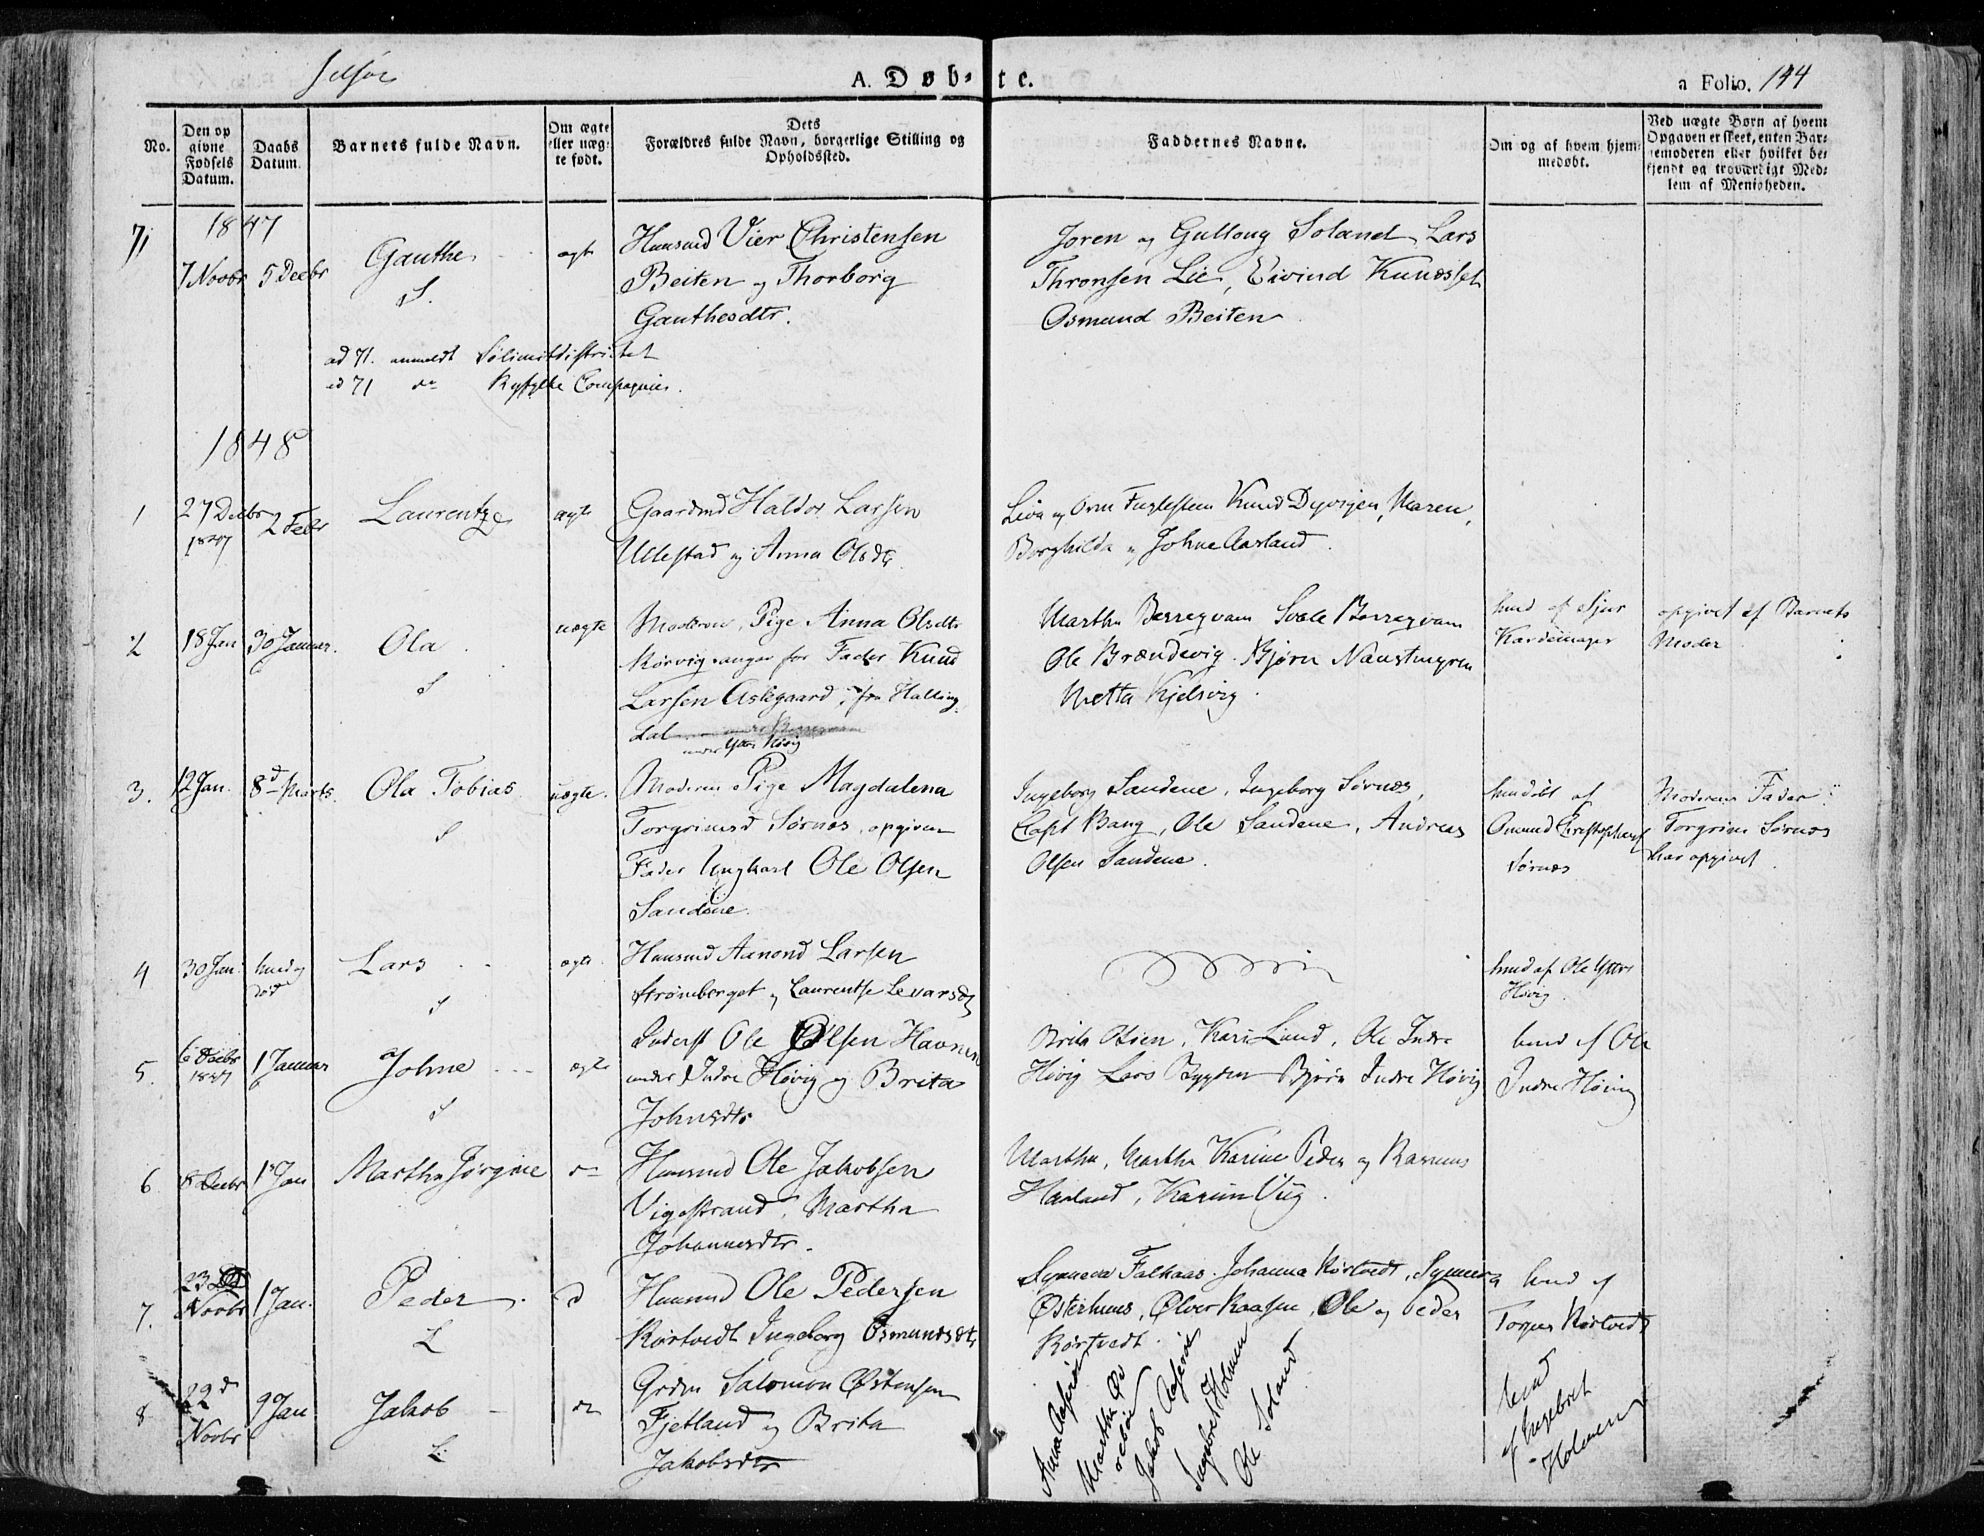 A. Døbte.
a Folio. 144
No.
Den op
givne
Fødsels
Datum.
Daabs
Datum.
Barnets fulde Navn.
Om ægte
eller uæg-
te født.
Dets
Forældres fulde Navn, borgerlige Stilling og
Opholdssted.
Faddernes Navne.
Om og af hvem hjem-
medøbt.
Ved uægte Børn af hvem
Opgaven er skeet, enten Bar-
nemoderen eller hvilket be-
kjendt og troværdigt Med-
lem af Menigheden.
71
1847
7 Novbr
5 Decbr
Gauthe
S.
ægte
Huusmd Vier Christensen
Beiten og Thorborg
Gauthesdtr.
Joren og Gullong Soland, Lars
Thronsen Lie, Eivind
Osmund Beiten
ad 71. anmeldt
ad 71 do Ryfylke Compagnie.
1848
1
27 Decbr
1847
2 Febr
Laurentze
ægte
Gaardmd Haldor Larsen
Ullestad og Anna Olsdtr.
Knud Dyvigen, Maren,
Borghilda og Johne Aarland.
2
18 Jan
30 Januar.
Ola
S
uægte
Moderen Pige Anna Olsdtr
Rørvig anger for Fader Knud
Larsen fra Halling-
dal
under Ytre Høvig
Martha Berreqvam Berreqvam
Ole Brændevig. Bjørn Naustmyren
Metta Kjelsvig.
hmd af Sjur
Kardemager
opgivet af Barnets
Moder
3.
12 Jan.
8d Marts.
Ola Tobias
S
uægte.
Moderen Pige Magdalena
Torgrimsd Sørnæs, opgiven
Fader Ungkarl Ole Olsen
Sandene.
Ingeborg Sandene, Ingeborg Sørnæs,
Capt Bang, Ole Sandene, Andreas
Olsen Sandene.
hmdøbt af
Omund Christophers
Sørnæs
Moderens Fader
Torgrim Sørnæs
har opgivet
4
30 Jan.
hmd og
død
Lars
S
ægte.
Huusmd Aanond Larsen
Strømberget og Laurentse Levarsd
hmd af Ole Ytre
Høvig.
5.
6 Decbr
1847
1 Januar
Johne
S
ægte
Inderst Ole Olsen Havnen
under Indre Høvig og Brita
Johnsdtr
Brita Kari Lund, Ole Indre
Høvig Lars Bygden Bjørn Indre Høvig
hmd af Ole
Indre Høvig
6
8 Decbr
1 Jan
Martha Jørgine
do
Huusmd Ole Jakobsen
Vigestrand, Martha
Johannesdtr.
Martha, Martha Karine Peder og Rasmus
Haaland, Karen Viig.
7.
23
Novbr
1 Jan.
Peder
S
do
Huusmd Ole Pedersen
Rørtvedt Ingeborg Osmundsdtr
Synneva Falkaas. Johanna Rørtvedt, Synneva
Østerhuus, Ølver Kaasen, Ole og Peder
Rørtvedt.
hmd af
Torger Rørtvedt
8
22d
Novbr
9 Jan
Jakob
S.
do
Grdm Salomon Østensen
Fjetland og Brita
Jakobsdtr
Anna
Martha
Jakob
Ingebret Holmen
Ole Soland
hmd
af Ingebret
Holmen